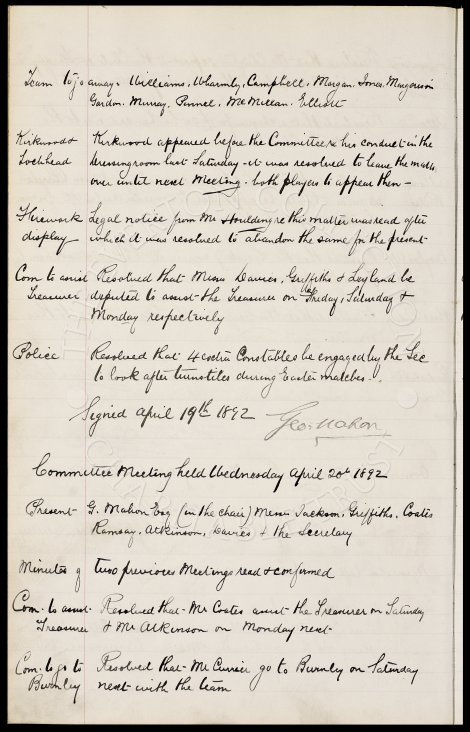 Team to go away. Williams, Wharmby, Campbell, Morgan. Jones. Margerison
Gordon. Murray. Pinnell. McMillan. Elliott
Kirkwood & Lochhead Kirkwood appeared before the Committee re his conduct in the
dressingroom last Saturday - it was resolved to leave the matter
over until next Meeting. both players to appear then -
Firework display Legal notice from Mr Houlding re this matter was read after
which it was resolved to abandon the same for the present
Com to assist Treasurer Resolved that Messrs Davies, Griffiths & Leyland be
deputed to assist the Treasurer on Friday, Saturday &
Monday respectively
Police Resolved that 4 extra Constables be engaged by the Sec
to look after turnstiles during Easter matches.
Signed April 19th 1892 Geo. Mahon
Committee Meeting held Wednesday April 20th 1892
Present G. Mahon Esq (in the chair) Messrs Jackson, Griffiths, Coates
Ramsay, Atkinson, Davies & the Secretary
Minutes of two previous Meetings read & confirmed
Com. to assist Treasurer Resolved that Mr Coates assist the Treasurer on Saturday
& Mr Atkinson on Monday next
Com. to go to Burnley Resolved that Mr Currier go to Burnley on Saturday
next with the team